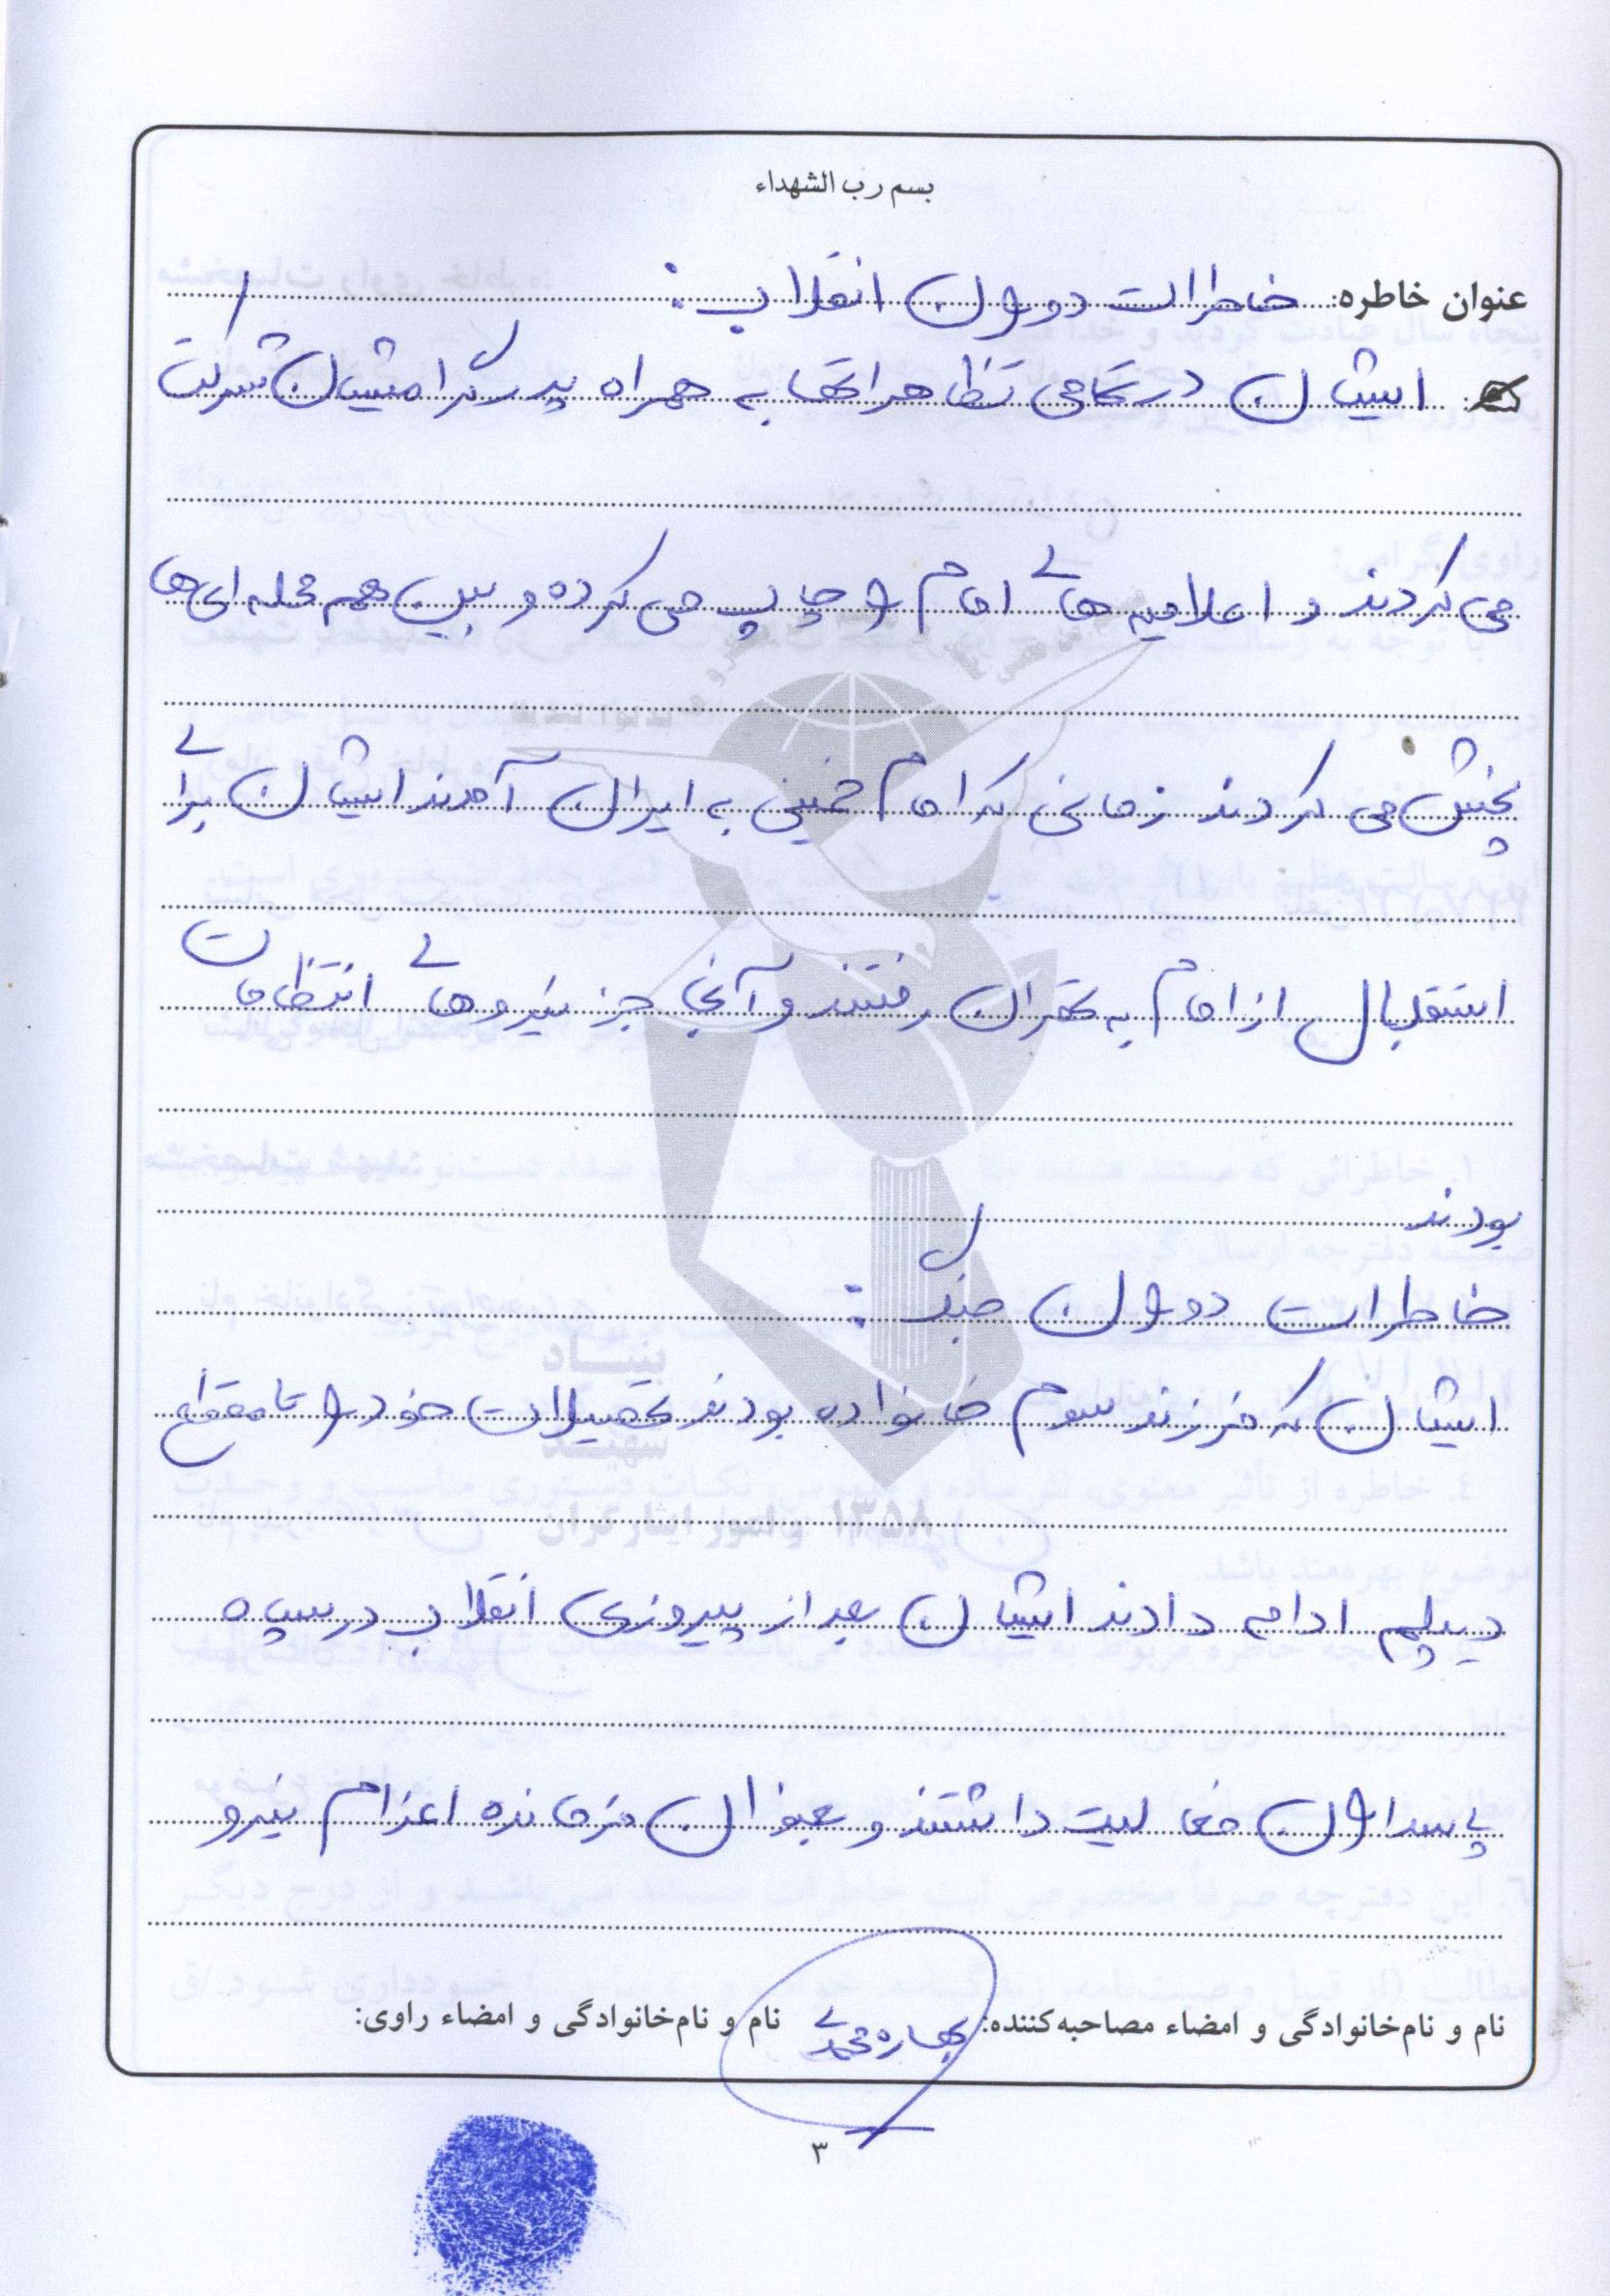 بسم رب الشهداء
عنوان خاطره: خاطرات دوران انقلاب :
ایشان در تمامی تظاهراتها به همراه پدر گرامیشان شرکت
می کردند و اعلامیه های امام را چاپ می کرده و بین هم محله ای ها
پخش می کردند زمانی که امام خمینی به ایران آمدند ایشان برای
استقبال از امام به تهران رفتند و آنجا جز نیروهای انتظامات
بودند
خاطرات دوران جنگ :
ایشان که فرزند سوم خانواده بودند تحصیلات خود را تا مقطع
دیپلم ادامه دادند ایشان بعد از پیروزی انقلاب در سپاه
پاسداران فعالیت داشتند و بعنوان فرمانده اعزام نیرو
نام و نام‌خانوادگی و امضاء مصاحبه‌کننده: بهاره محمدی نام و نام‌خانوادگی و امضاء راوی:
۳
بنیاد
شهید
۱۳۵۸ و امور ایثارگران